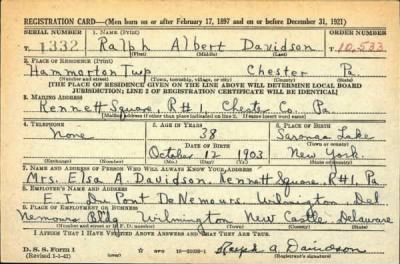 REGISTRATION CARD—(Men born on or after February 17, 1897 and on or before December 31, 1921)
SERIAL NUMBER 1. NAME (Print) ORDER NUMBER
T 1332 Ralph Albert Davidson T 10,533
(First) (Middle) (Last)
2. PLACE OF RESIDENCE (Print)
Hammorton Twp Chester Pa.
(Number and street) (Town, township, village, or city) (County) (State)
[THE PLACE OF RESIDENCE GIVEN ON THE LINE ABOVE WILL DETERMINE LOCAL BOARD
JURISDICTION; LINE 2 OF REGISTRATION CERTIFICATE WILL BE IDENTICAL]
3. MAILING ADDRESS
Kennett Square, R#1, Chester Co. Pa.
[Mailing address if other than place indicated on line 2. If same insert word same]
4. TELEPHONE 5. AGE IN YEARS 6. PLACE OF BIRTH
None 38 Saranac Lake
DATE OF BIRTH (Town or county)
October 12 1903 New York.
(Exchange) (Number) (Mo.) (Day) (Yr.) (State or country)
7. NAME AND ADDRESS OF PERSON WHO WILL ALWAYS KNOW YOUR ADDRESS
Mrs. Elsa A. Davidson, Kennett Square, R#1, Pa.
8. EMPLOYER'S NAME AND ADDRESS
E. I. Du Pont De Nemours. Wilmington, Del
9. PLACE OF EMPLOYMENT OR BUSINESS
Nemours Bldg Wilmington New Castle, Delaware
(Number and street or R. F. D. number) (Town) (County) (State)
I AFFIRM THAT I HAVE VERIFIED ABOVE ANSWERS AND THAT THEY ARE TRUE.
D. S. S. Form 1 Ralph A Davidson
(Revised 1-1-42) (Registrant's signature)